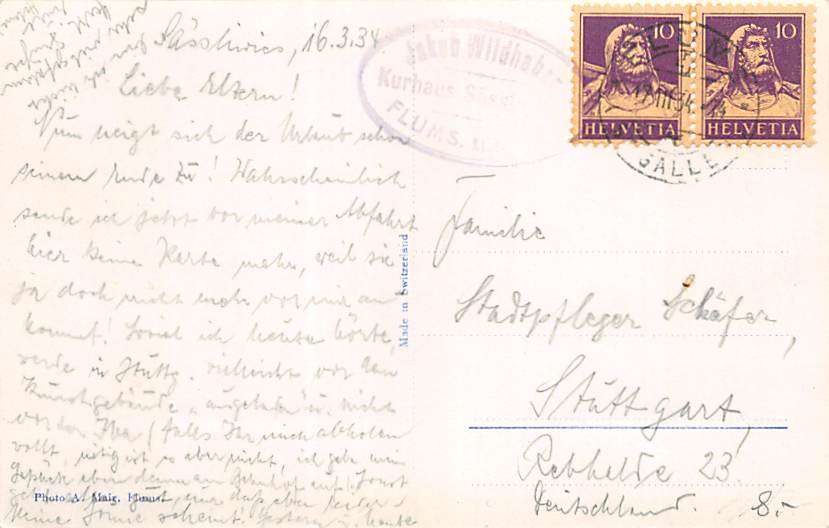 Sässliwies, 16.3.34
Liebe Eltern!
Nun neigt sich der Urlaub schon
seinem Ende zu! Wahrscheinlich
sende ich jetzt vor meiner Abfahrt
hier keine Karte mehr, weil sie
ja doch nicht mehr vor mir an
kommt! Soviel ich heute hörte,
werde in Stuttg. vielleicht vor dem
Kunstgebäude "ausgeladen" u. nicht
vor der (falls Ihr mich abholen
wollt, nötig ist es aber nicht, ich gebe mein
Gepäck eben dann am Bahnhof auf! Sonst
gut, nur daß eben leider
keine Sonne scheint. Gestern u. heute
Photo A. Maig, Flums.
Made in Switzerland
Jakob Wildhaber
Kurhaus Sässli
FLUMS.
10 10
HELVETIA HELVETIA
GALLE
Familie
Stadtpfleger Schäfer,
Stuttgart,
Rebhalde 23
Deutschland. 8.-